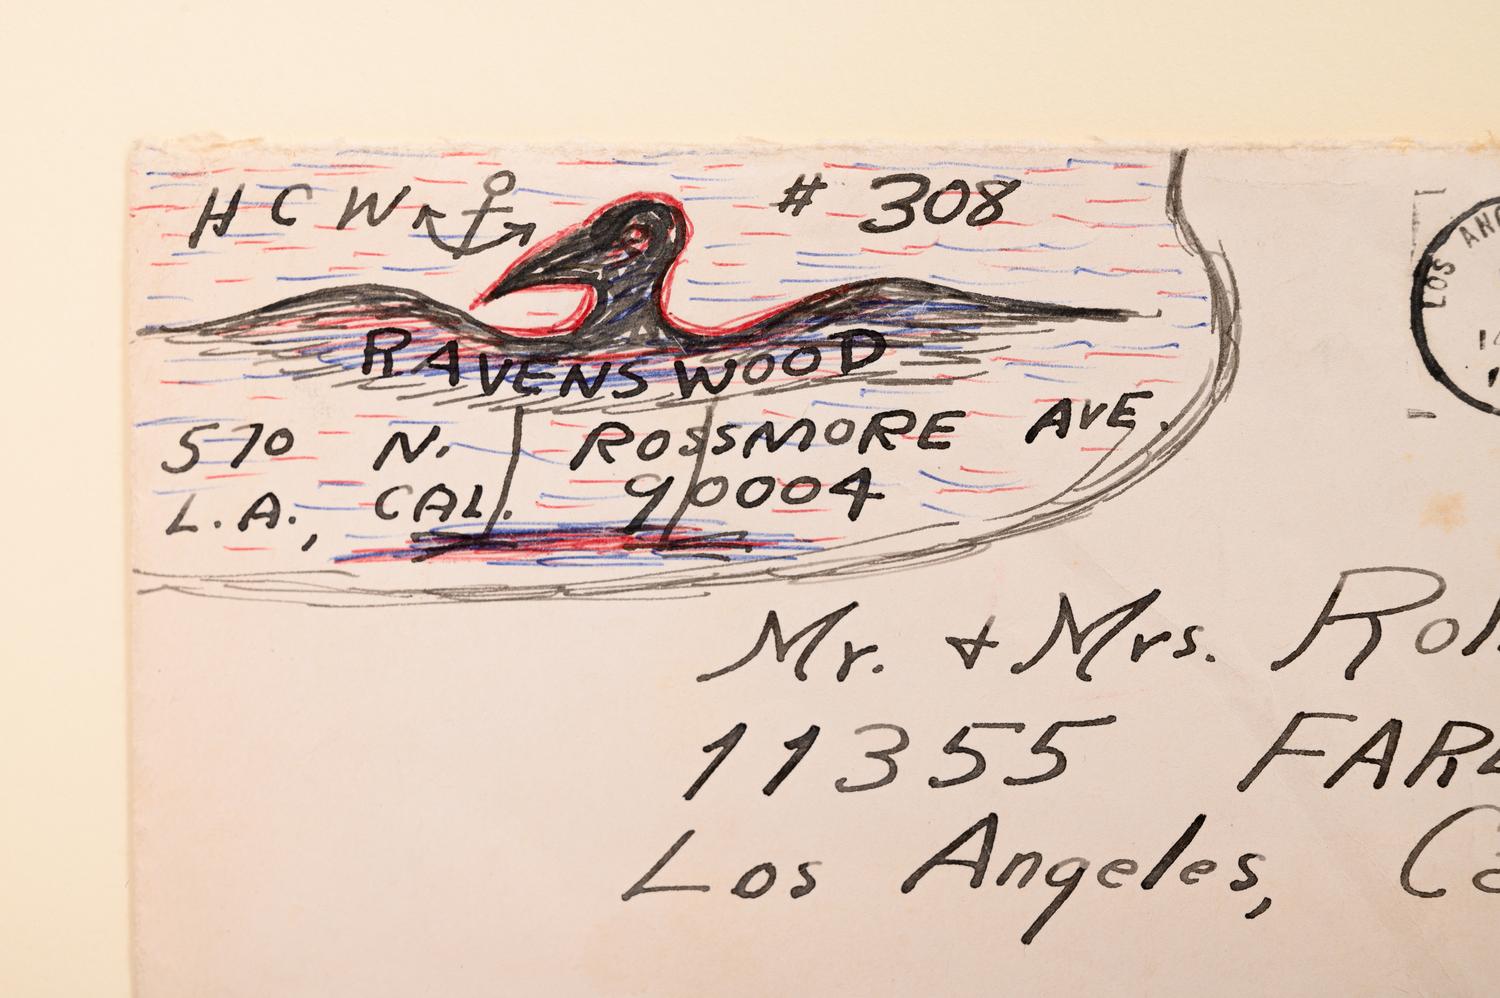 HCW # 308
RAVENSWOOD
570 N. ROSSMORE AVE.
L.A., CAL. 90004
LOS
Mr. & Mrs.
11355
Los Angeles,